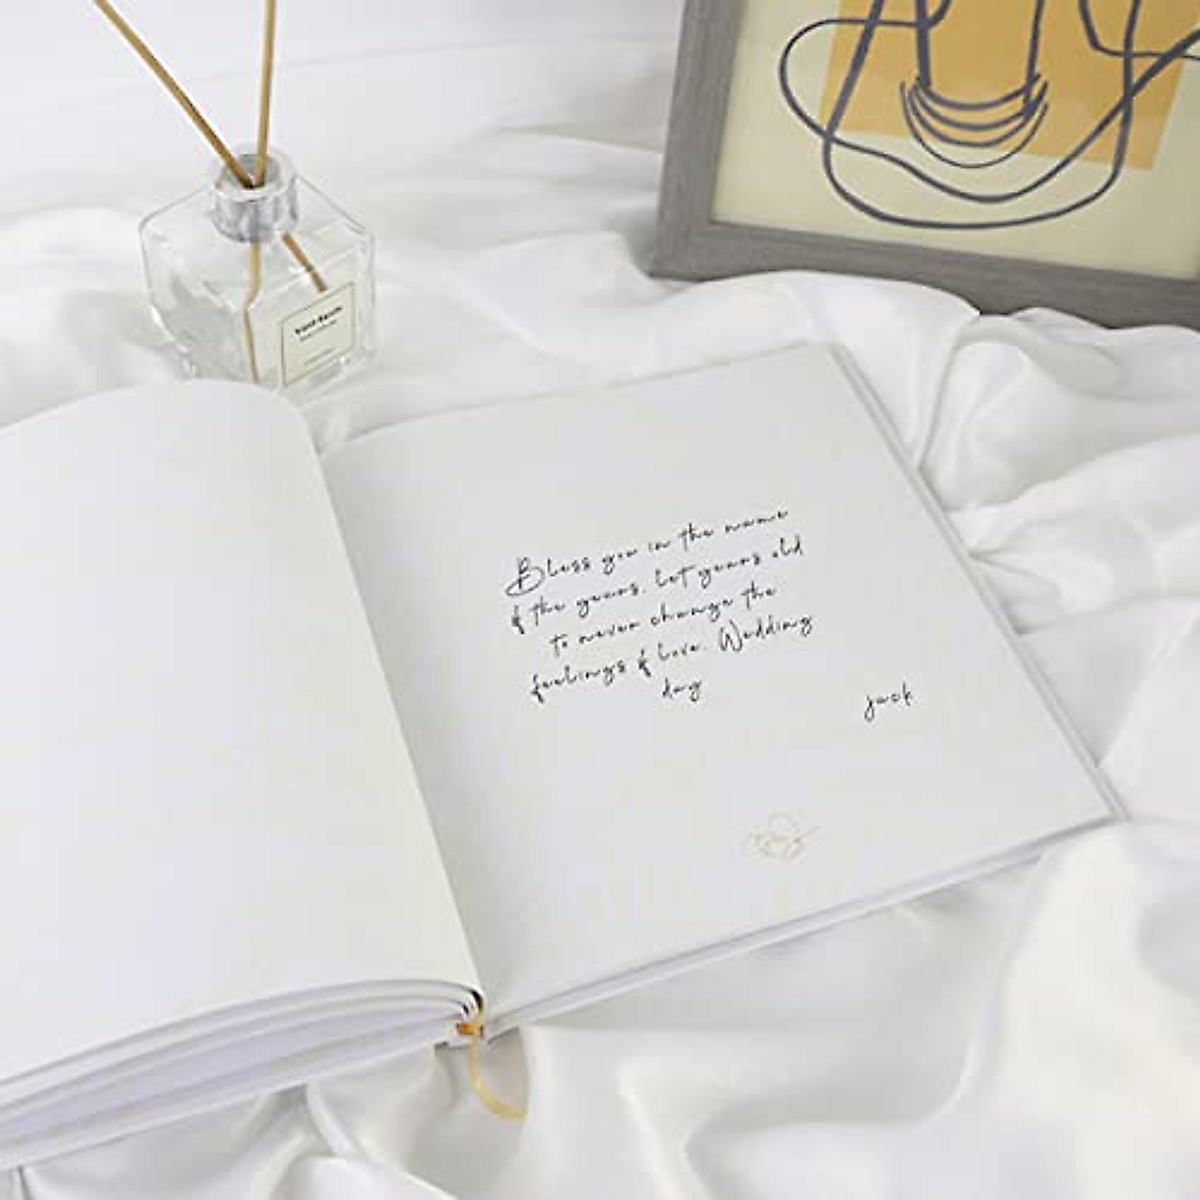 Bless you in the name
of the years. Let years old
to never change the
feelings of love. Wedding
day
jack